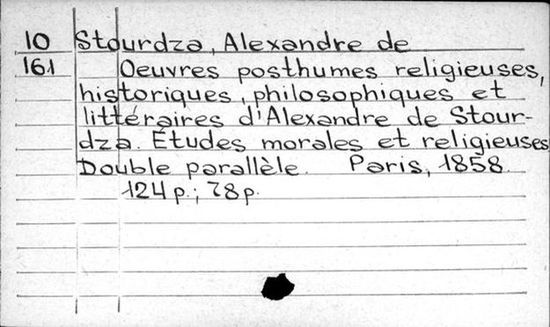 10 Stourdza, Alexandre de
161 Oeuvres posthumes religieuses,
historiques, philosophiques et
littéraires d'Alexandre de Stour-
dza. Études morales et religieuses
Double parallèle. Paris, 1858.
124 p.; 78 p.